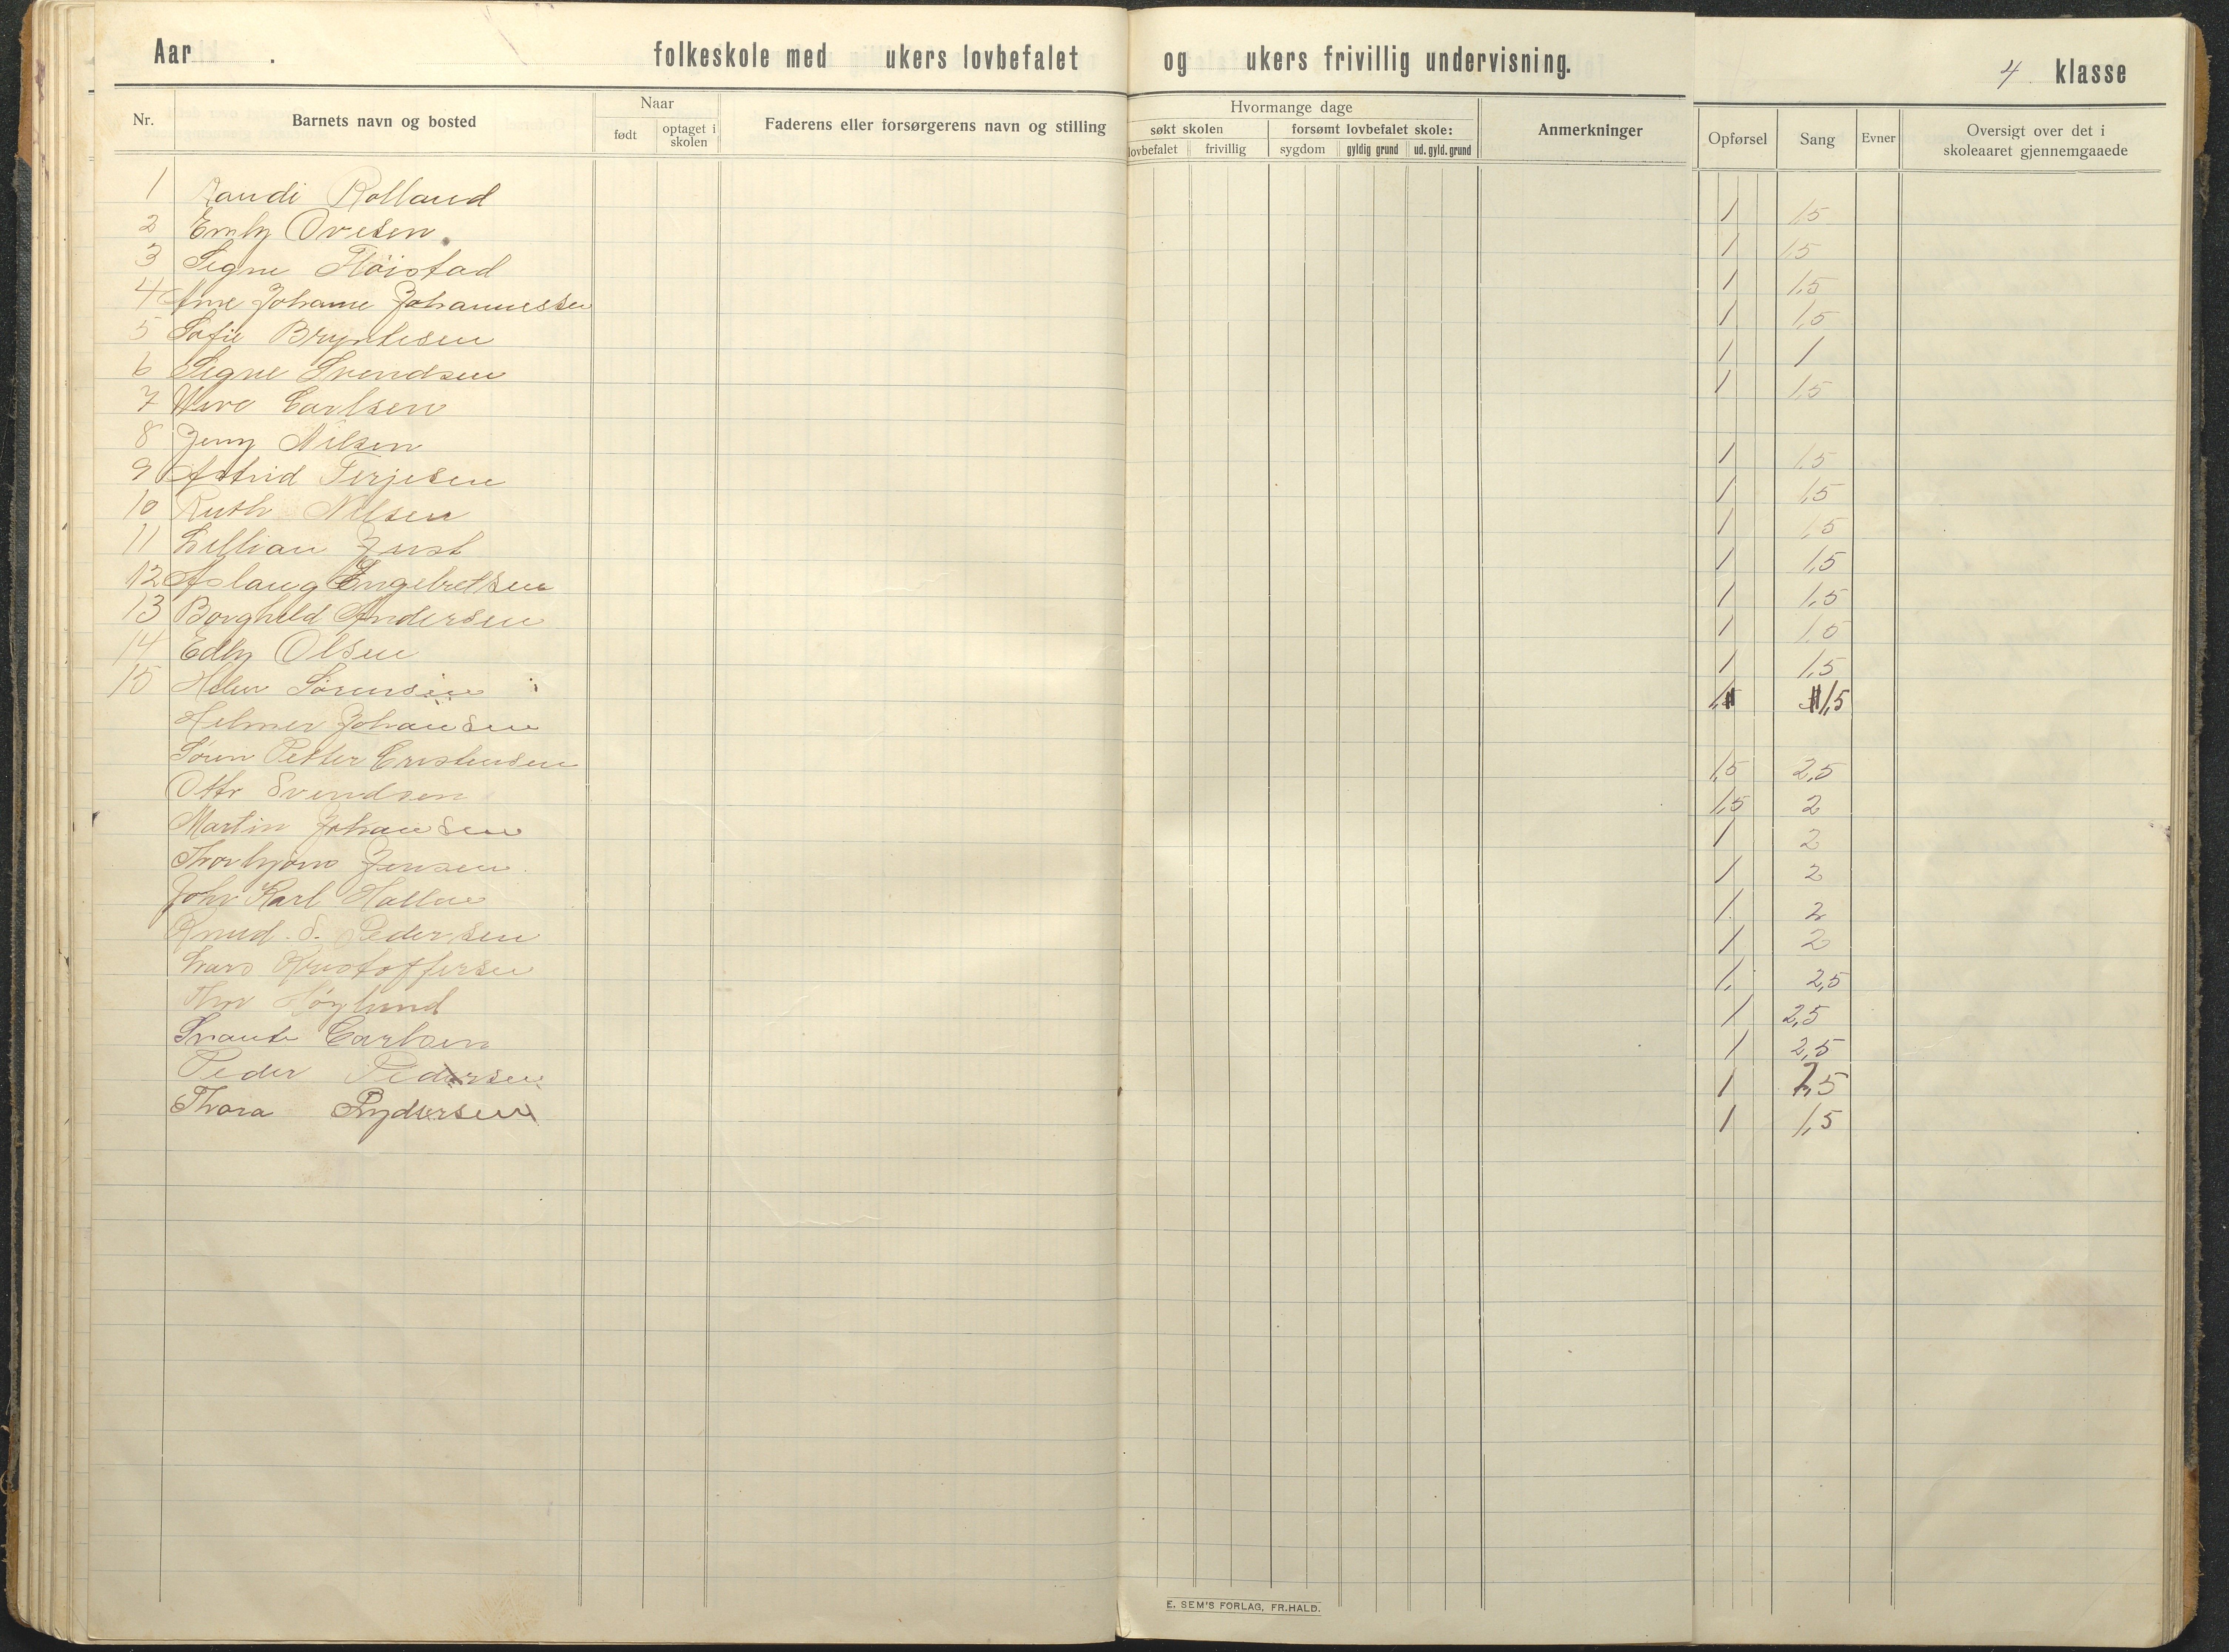 Aar . folkeskole med ukers lovbefalet og ukers frivillig undervisning. 4 klasse
Nr. Barnets navn og bosted Naar født optaget i skolen Faderens eller forsørgerens navn og stilling Hvormange dage søkt skolen lovbefalet frivillig forsømt lovbefalet skole: sygdom gyldig grund ud. gyld. grund Anmerkninger Opførsel Sang Evner Oversigt over det i skoleaaret gjennemgaaede
1 Randi Rolland 1 1,5
2 Emly Ovesen 1 1,5
3 Signe Fløistad 1 1,5
4 Ane Johanne Johannessen 1 1,5
5 Sofie Bryntesen 1 1
6 Signe Svendsen 1 1,5
7 Carlsen
8 Jeny Nilsen 1 1,5
9 Astrid Terjesen 1 1,5
10 Ruth Nilsen 1 1,5
11 Lillian Just 1 1,5
12 Aslaug Engebretsen 1 1,5
13 Borghild Andersen 1 1,5
14 Edly Olsen 1 1,5
15 Helen Sørensen 1,5
Helmer Johansen
Søren Petter Cristensen 1,5 2,5
Otto Svendsen 1,5 2
Martin Johansen 1 2
Thorbjørn Jensen 1 2
John Karl Halln 1 2
Knud. S. Pedersen 1 2
Lars Kristoffersen 1, 2,5
Thor Høglund 1 2,5
Svante Carlsen 1 2,5
Peder Pedersen 1 1,5
Thora Rydersen 1 1,5
E. SEM'S FORLAG, FR.HALD.